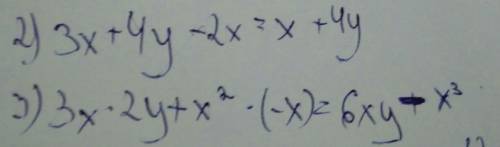 2) 3x + 4y - 2x = x + 4y
3) 3x · 2y + x² · (-x) = 6xy - x³